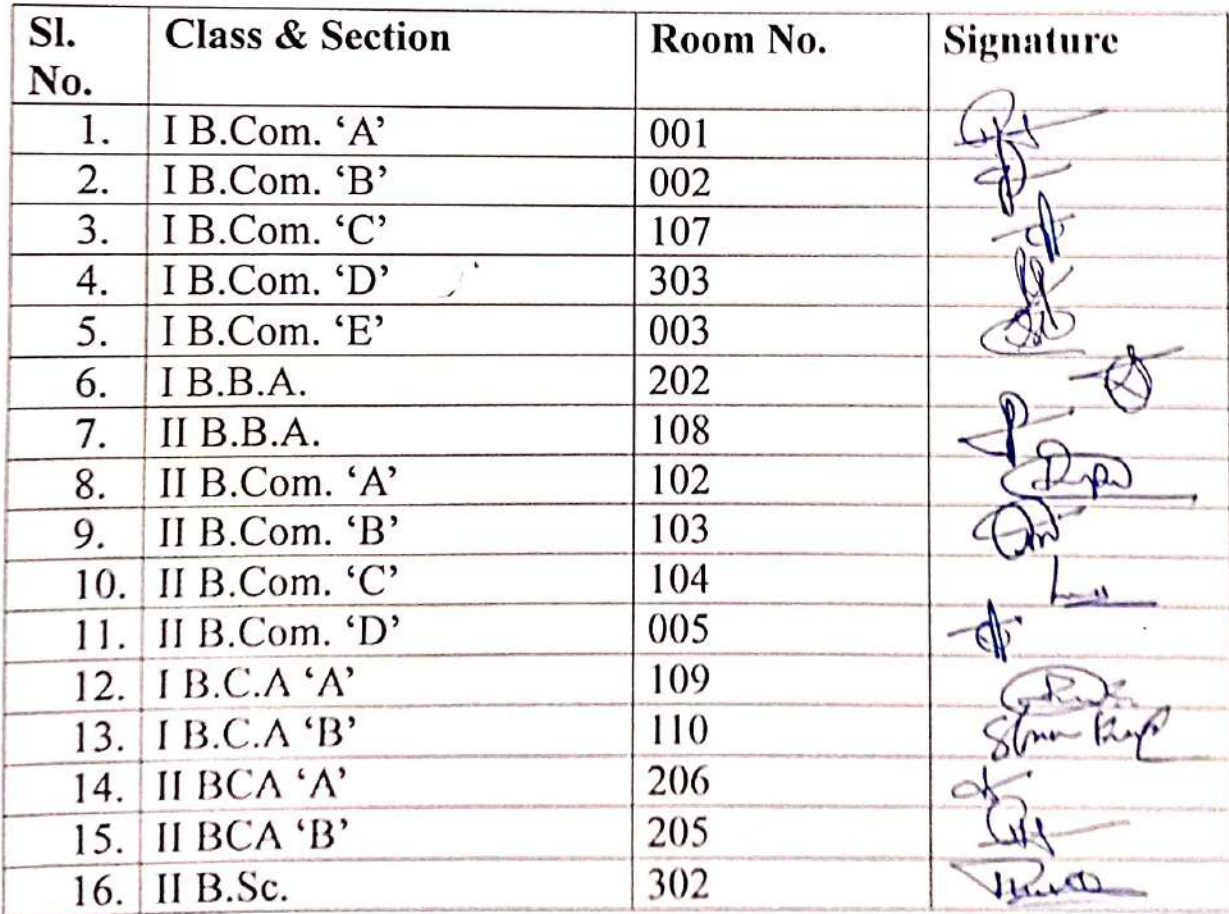 Sl. No. Class & Section Room No. Signature
1. I B.Com. ‘A’ 001
2. I B.Com. ‘B’ 002
3. I B.Com. ‘C’ 107
4. I B.Com. ‘D’ 303
5. I B.Com. ‘E’ 003
6. I B.B.A. 202
7. II B.B.A. 108
8. II B.Com. ‘A’ 102
9. II B.Com. ‘B’ 103
10. II B.Com. ‘C’ 104
11. II B.Com. ‘D’ 005
12. I B.C.A ‘A’ 109
13. I B.C.A ‘B’ 110
14. II BCA ‘A’ 206
15. II BCA ‘B’ 205
16. II B.Sc. 302